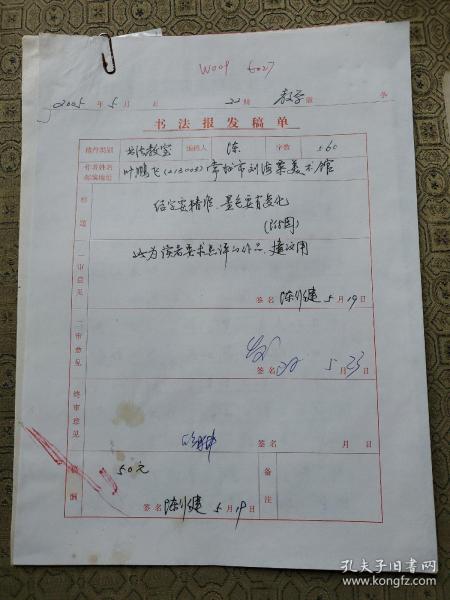 W009 6027
2005年5月 日 22期 教学版 条
书法报发稿单
稿件类别 书法教室 编稿人 陈 字数 560
作者姓名 邮编地址 叶鹏飞(213003)常州市刘海粟美术馆
标题 结字要精准、墨色要有变化
(附图)
一审意见 此为读者要求点评的作品,建议用
签名 陈行健 5月19日
二审意见
签名 5月23日
终审意见
签名 月 日
稿酬 50元 备注
签名 陈行健 5月19日
孔夫子旧书网
www.kongfz.com